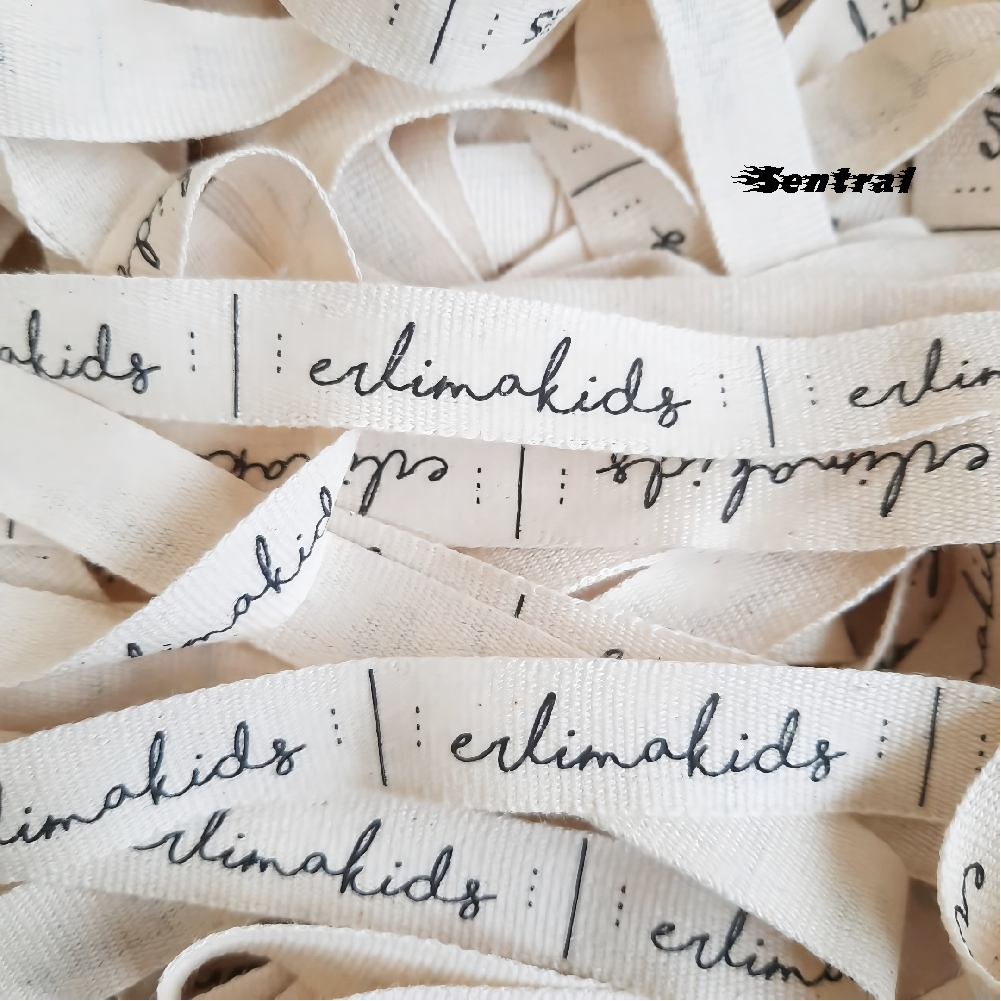 Sentral
akids
erlimakids
erlim
erlimakids
limakid
limakids
erlimakids
rlimakids
erlima